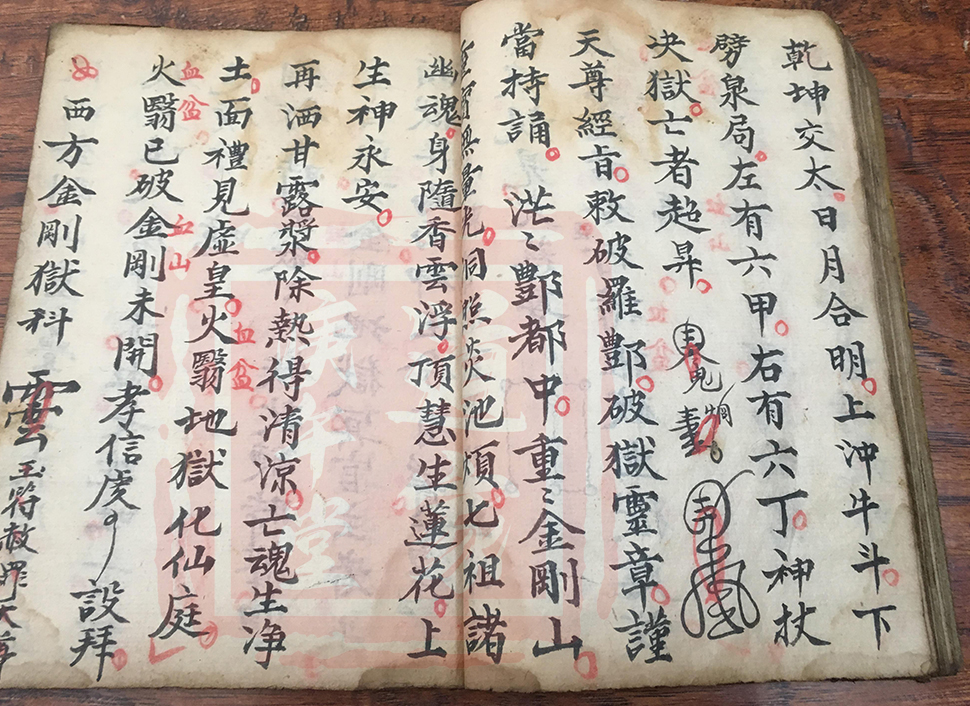 乾坤交太。日月合明。上沖牛斗。下
劈泉局。左有六甲。右有六丁。神杖
决獄。亡者超昇。
天尊經旨。敕破羅酆。破獄靈章。謹
當持誦。茫〻酆都中。重〻金剛山。
靈寶無量光。洞照炎池煩。七祖諸
幽魂。身隨香雲浮。頂慧生蓮花。上
生神永安。
再洒甘露漿。除熱得清凉。亡魂生净
土。面禮見虛皇。火翳地獄化仙庭。
血盆
火翳已破金剛未開。孝信虔 設拜。
血盆
血山
西方金剛獄科 雲 玉符赦罪天尊